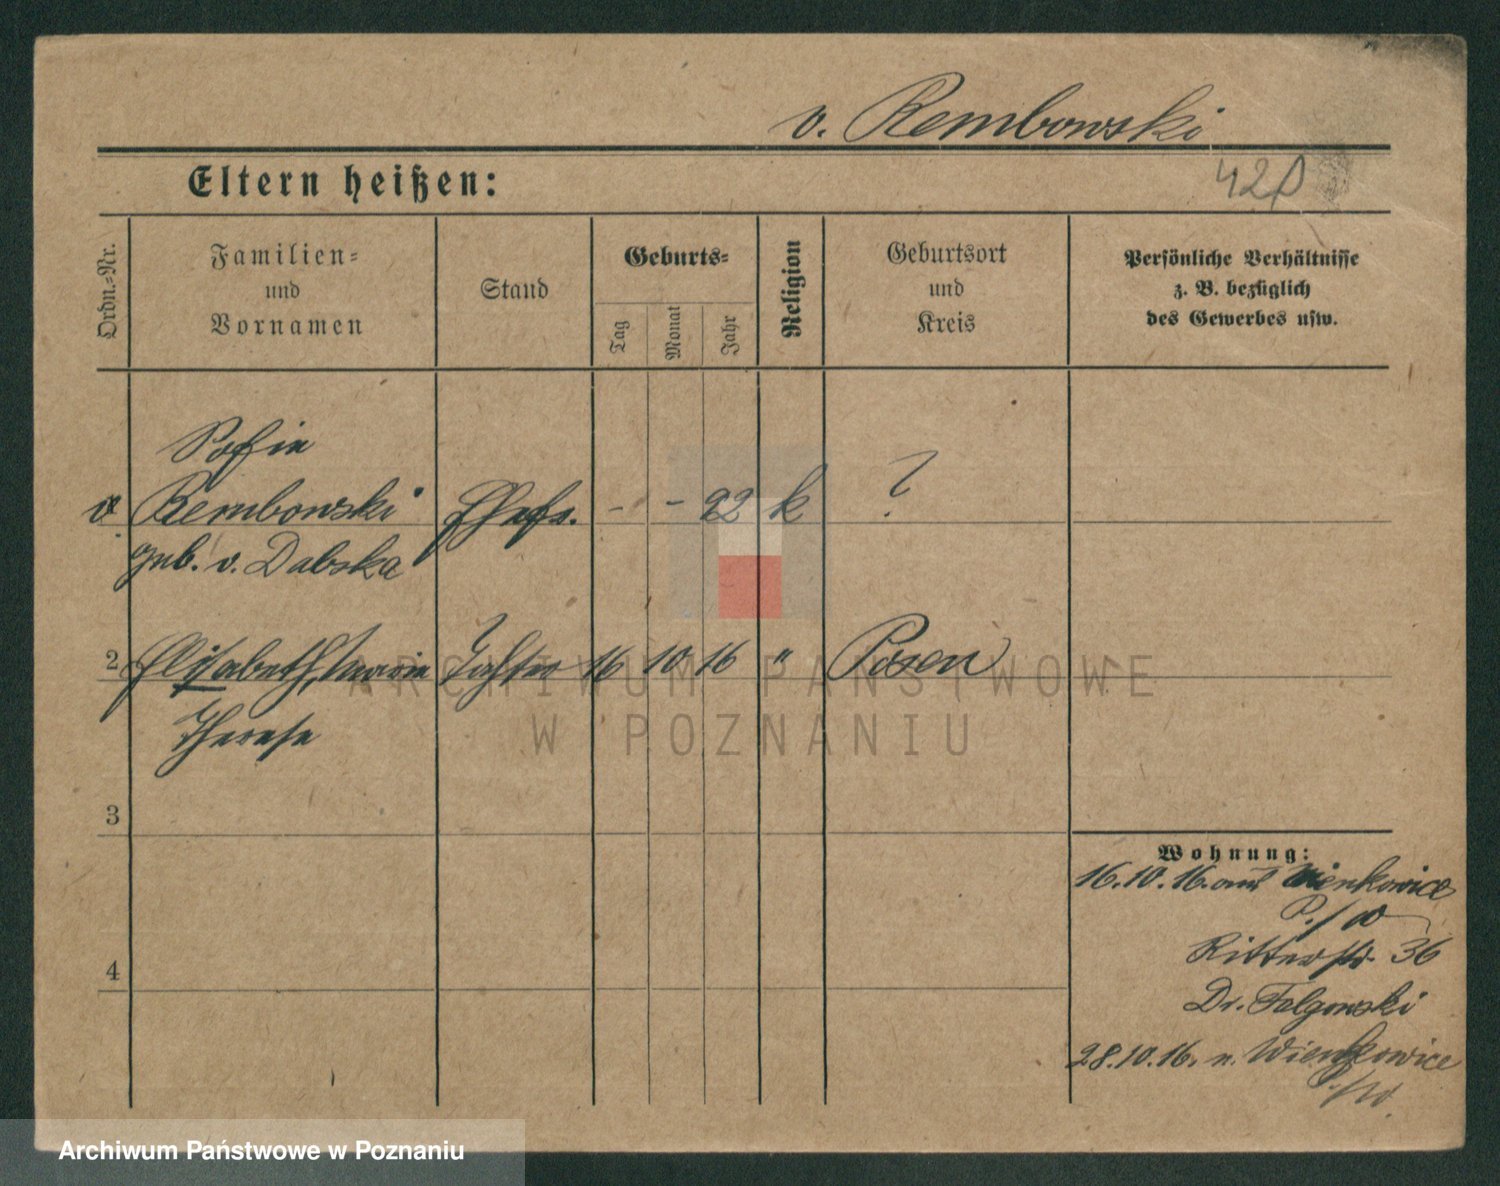 v. Rembowski
Eltern heißen:
420
Ordn.-Nr.
Familien-
und
Vornamen
Stand
Geburts-
Tag
Monat
Jahr
Religion
Geburtsort
und
Kreis
Persönliche Verhältnisse
z. B. bezüglich
des Gewerbes usw.
Sofie
v. Rembowski Ehefr. - - 92 k ?
geb. v. Dabska
2 Elisabeth, Marie Tochter 16 10 16 " Posen
Therese
ARCHIWUM PAŃSTWOWE
W POZNANIU
3
Wohnung:
16.10.16. aus Wienkowice
P./
Ritterstr. 36
4
Dr. Falgowski
28.10.16. n. Wienkowice
Archiwum Państwowe w Poznaniu